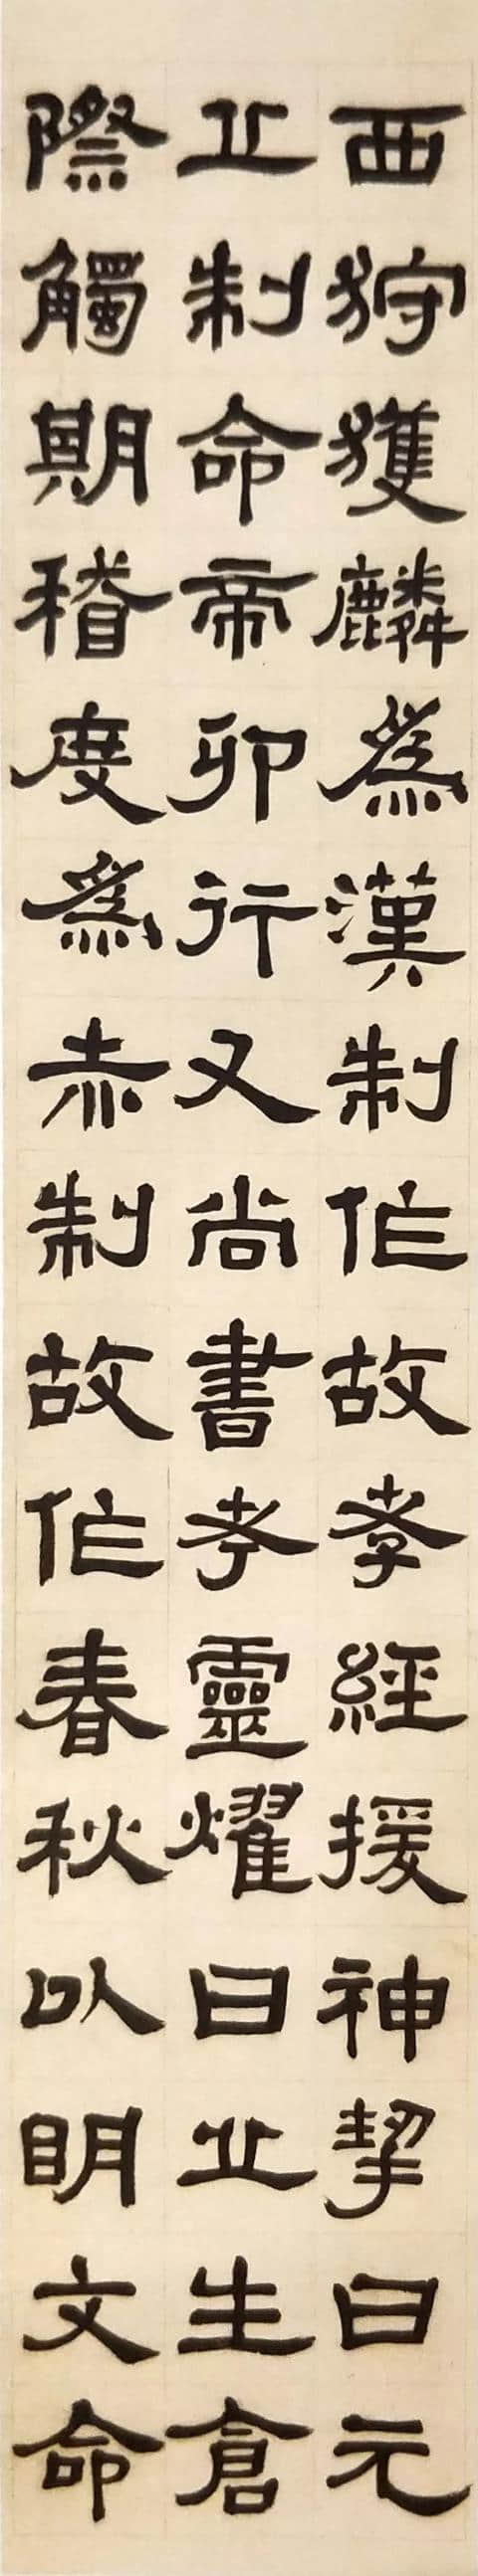 西狩獲麟為漢制作故孝經援神挈曰元
丘制命帝卯行又尚書考靈燿曰丘生倉
際觸期稽度為赤制故作春秋以明文命